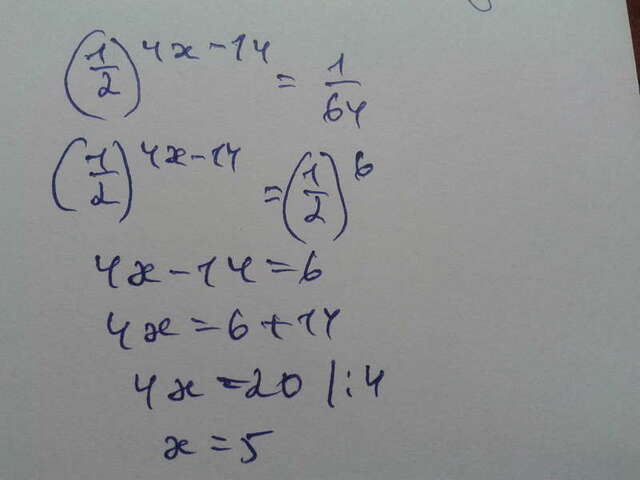 (1/2)^(4x-14) = 1/64
(1/2)^(4x-14) = (1/2)^6
4x-14=6
4x=6+14
4x=20 /:4
x=5